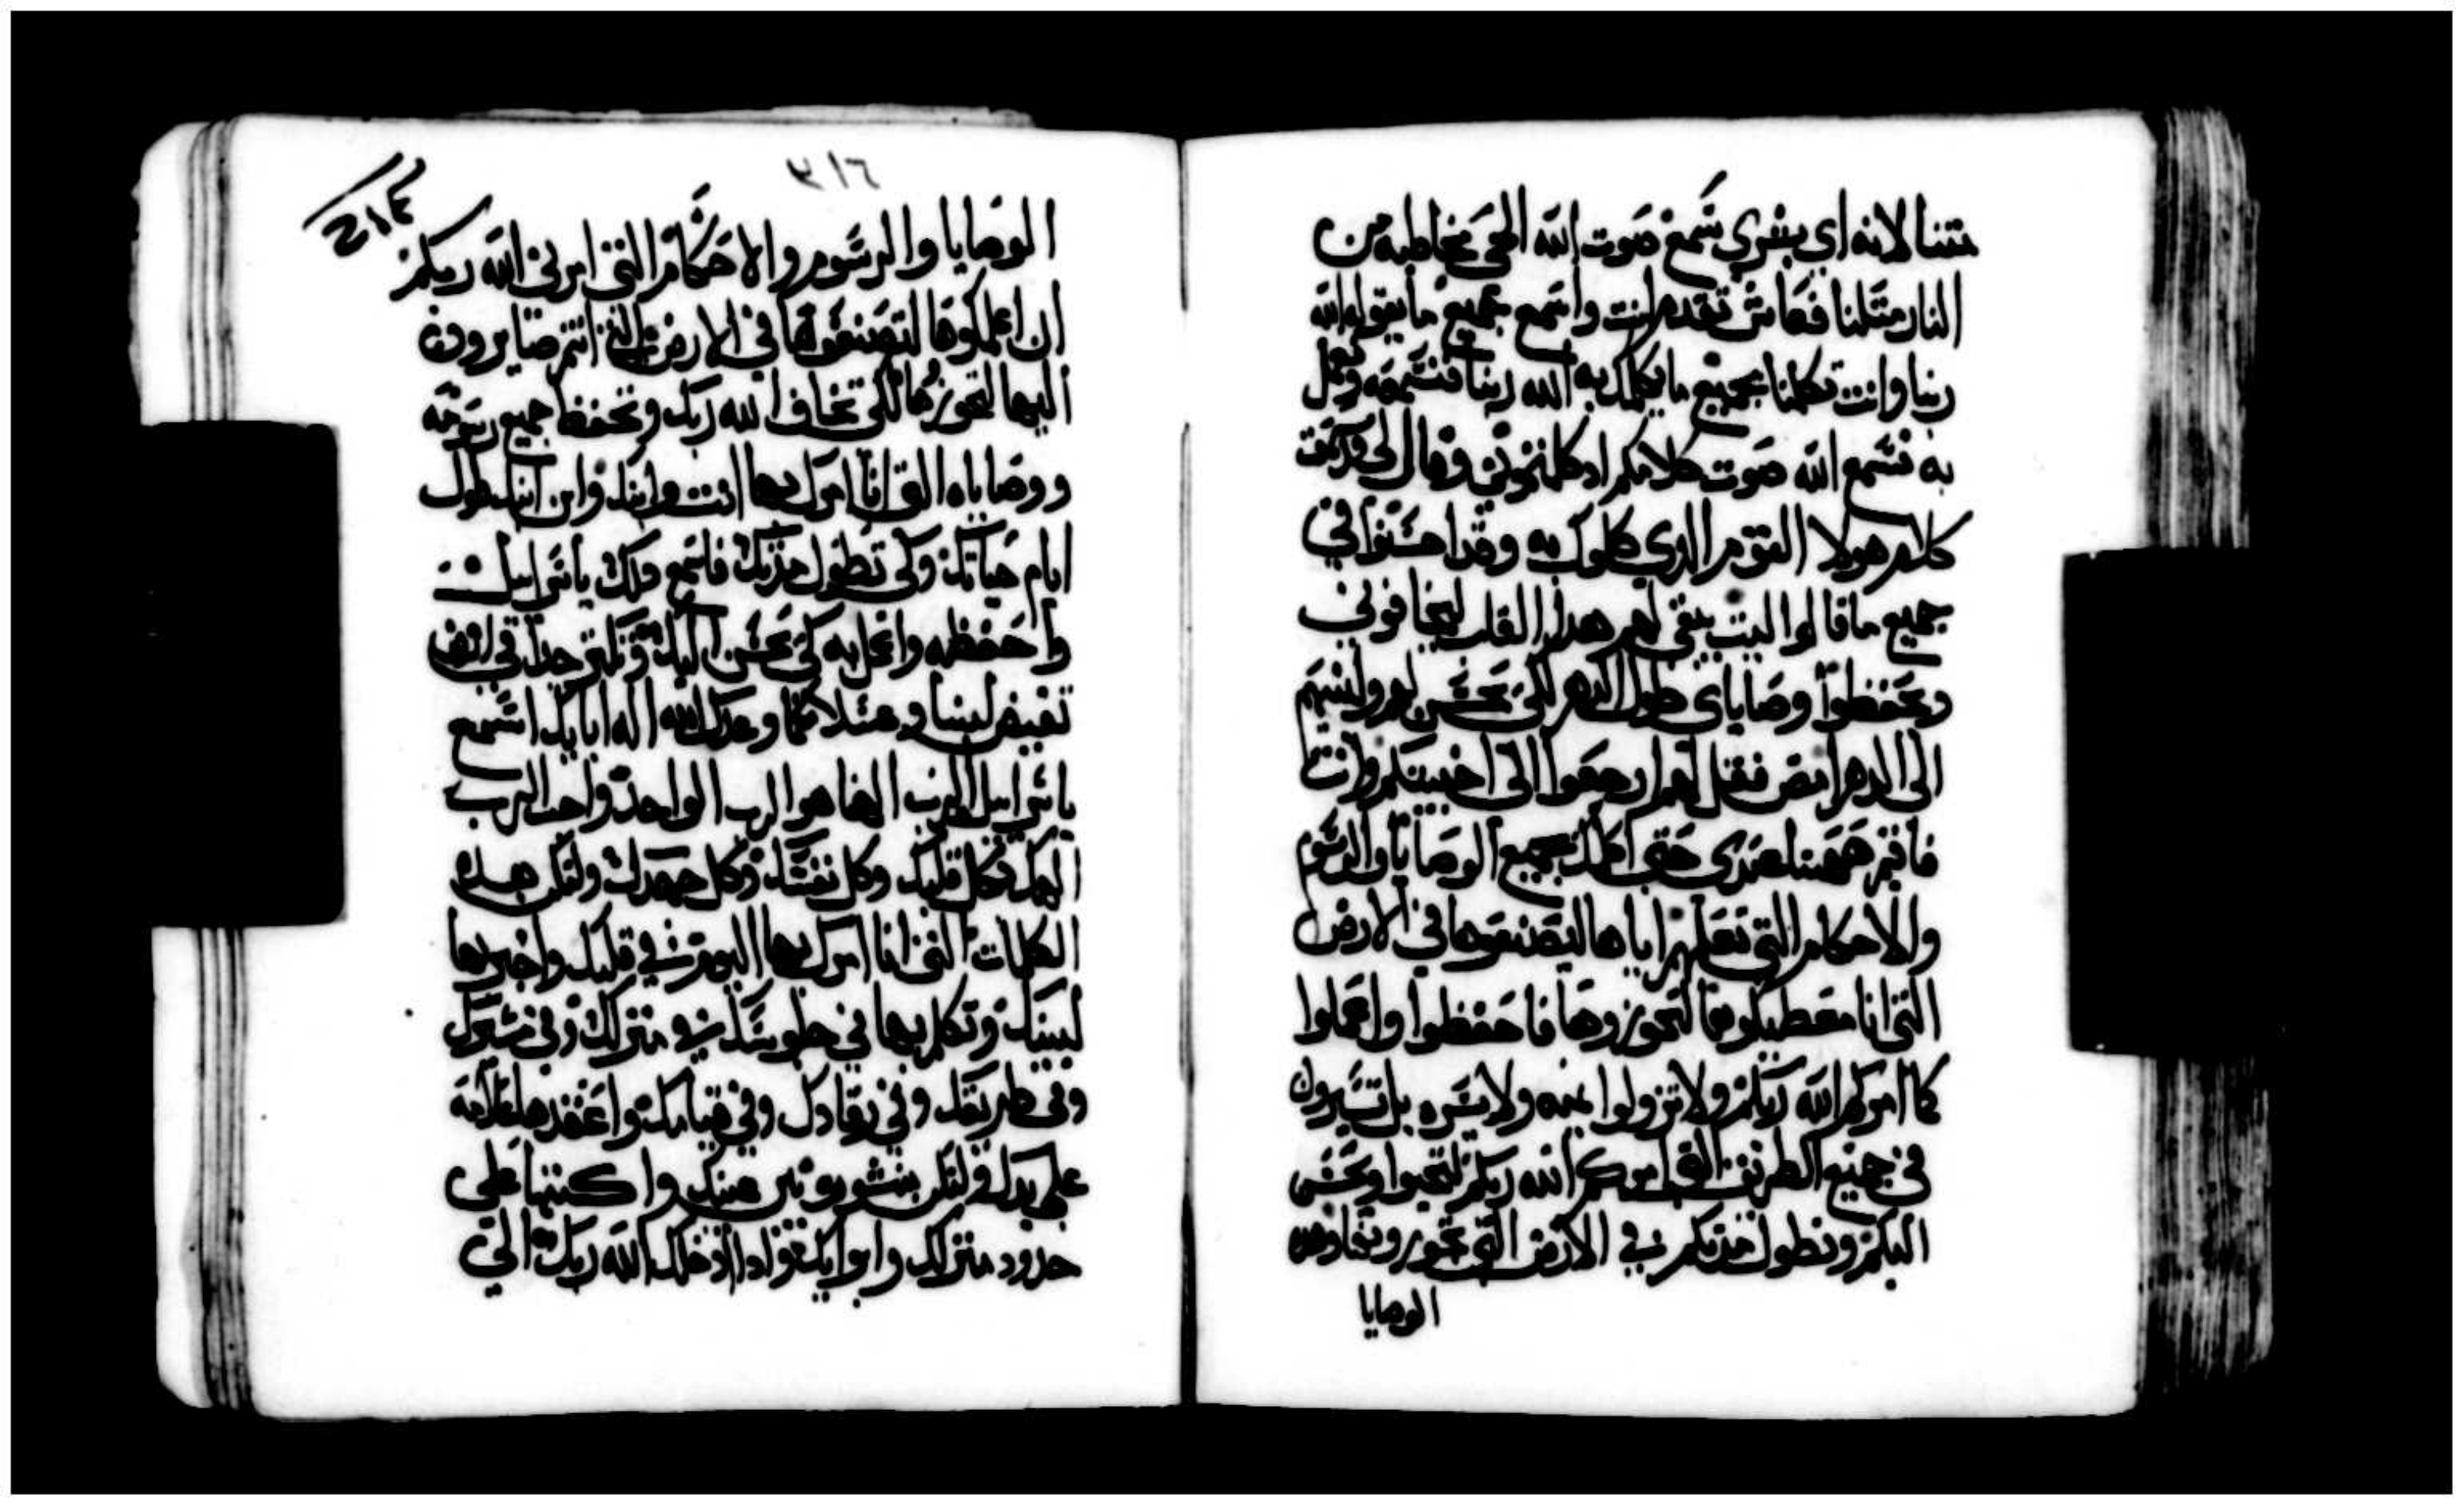 متنا لانه اي بشري سمع صوت الله الحي مخاطبه من
النار مثلنا فعاش تقدم انت واسمع جميع ما يقوله الله
ربنا وانت تكلمنا بجميع ما يكلمك به الله ربنا فنسمعه ونعمل
به فسمع الله صوت كلامكم اد كلمتموني وقال لي قد سمعت
كلام هولا القوم الدي كلموك به وقد احسنوا في
جميع ما قالوا ليت يبقي لهم هدا القلب ليخافوني
ويحفظوا وصاياي طول الدهر لكي يحسن لهم ولبنيهم
الى الدهر امض فقل لهم ارجعوا الى اخبيتكم وانت
فاقم هاهنا عندي حتى اكلمك بجميع الوصايا والرسوم
والاحكام التي تعلمهم اياها ليصنعوها في الارض
التي انا معطيكموها لتحوزوها فاحفظوا واعملوا
كما امركم الله ربكم ولا تزولوا يمنه ولا يسره بل تسيرون
في جميع الطريق التي امركم الله ربكم لتحيوا ويحسن
اليكم وتطول مدتكم في الارض التي تحوزوها وهده
الوصايا
٣١٦
الوصايا والرسوم والاحكام التي امرني الله ربكم
ان اعلمكوها لتصنعوها في الارض التي انتم صايرون
اليها لتحوزها لكي تخاف الله ربك وتحفظ جميع رسومه
ووصاياه التي انا امرك بها انت وابنك وابن ابنك طول
ايام حياتك وكي تطول مدتك فاسمع دلك ياسراييل
واحفظه واعمل به كي يحسن اليك وتكتر جدا في ارض
تفيض لبنا وعسلا كما وعدك الله اله ابايك اسمع
ياسراييل الرب الهنا هو الرب الواحد واحب الرب
الهك بكل قلبك وكل نفسك وكل جهدك ولتكن هده
الكلمات التي انا امرك بها اليوم في قلبك واخبر بها
لبنيك وتكلم بها في جلوسك في منزلك وفي مسيرك
وفي طريقك وفي رقادك وفي قيامك واعقدها علامه
على يدك ولتكن منشوره بين عينيك واكتبها على
حدود منزلك وابوابك وادا ادخلك الله ربك الى